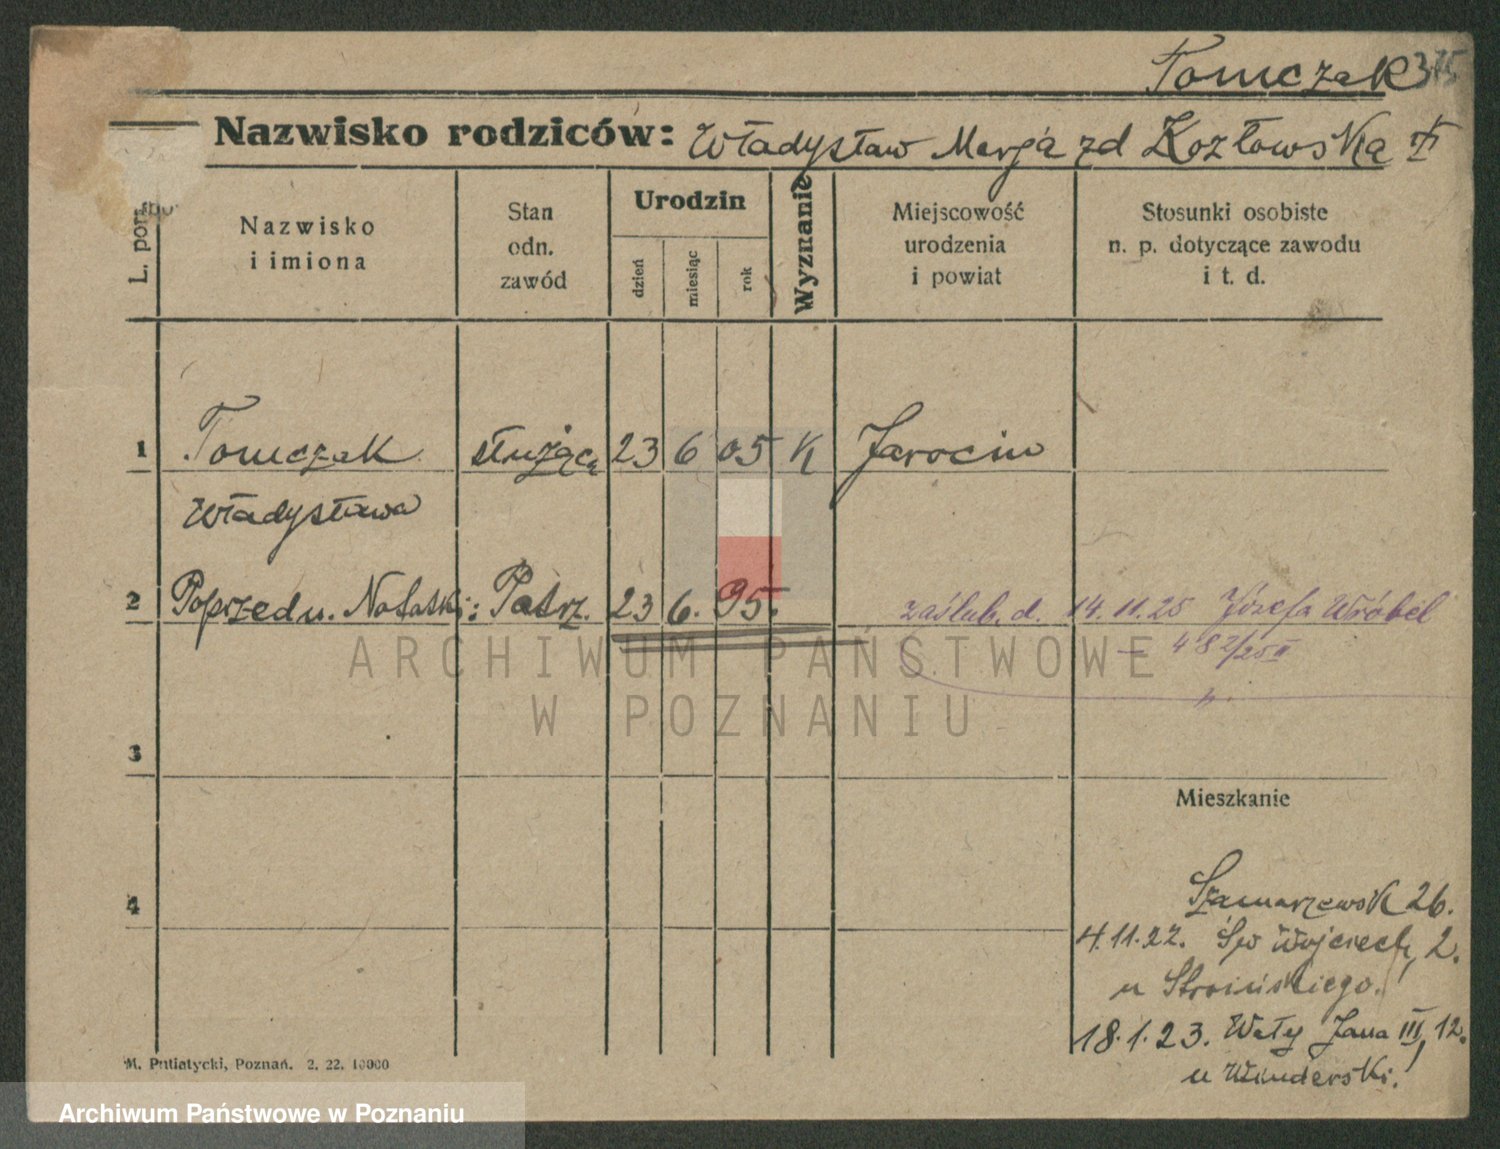 Tomczak 375
Nazwisko rodziców: Władysław Marja zd Kozłowska
L. porz.
Nazwisko
i imiona
Stan
odn.
zawód
Urodzin
dzień
miesiąc
rok
Wyznanie
Miejscowość
urodzenia
i powiat
Stosunki osobiste
n. p. dotyczące zawodu
i t. d.
1 Tomczak służąca 23 6 05 K Jarocin
Władysława
2 Poprzedn. Notatki: Patrz. 23 6. 95. zaślub. d. 14.11.25 Józefa Wróbel
482/25 II
ARCHIWUM PAŃSTWOWE
W POZNANIU
3
Mieszkanie
4 Szamarzewsk 26.
4.11.22. Św Wojciech, 2.
u Stroińskiego.
18.1.23. Wały Jana III, 12.
u Winderski.
M. Putiatycki, Poznań. 2. 22. 10000
Archiwum Państwowe w Poznaniu